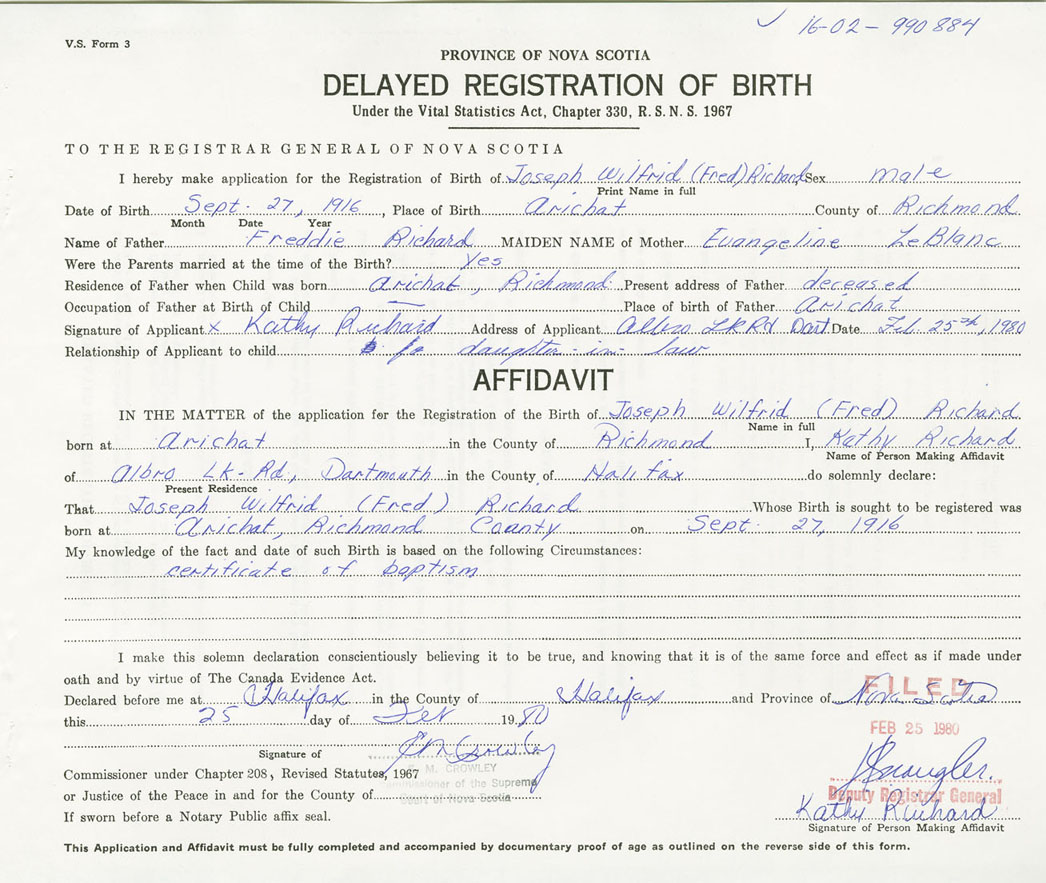 16-02-990884
V.S. Form 3
PROVINCE OF NOVA SCOTIA
DELAYED REGISTRATION OF BIRTH
Under the Vital Statistics Act, Chapter 330, R. S. N. S. 1967
TO THE REGISTRAR GENERAL OF NOVA SCOTIA
I hereby make application for the Registration of Birth of Joseph Wilfrid (Fred) Richard Sex male
Print Name in full
Date of Birth Sept. 27, 1916, Place of Birth Arichat County of Richmond
Month Date Year
Name of Father Freddie Richard MAIDEN NAME of Mother Evangeline LeBlanc
Were the Parents married at the time of the Birth? Yes
Residence of Father when Child was born Arichat, Richmond Present address of Father deceased
Occupation of Father at Birth of Child — Place of birth of Father Arichat
Signature of Applicant x Kathy Richard Address of Applicant Albro Lk Rd Dart. Date Feb. 25th, 1980
Relationship of Applicant to child daughter-in-law
AFFIDAVIT
IN THE MATTER of the application for the Registration of the Birth of Joseph Wilfrid (Fred) Richard
Name in full
born at Arichat in the County of Richmond I, Kathy Richard
Name of Person Making Affidavit
of Albro Lk-Rd, Dartmouth in the County of Halifax do solemnly declare:
Present Residence
That Joseph Wilfrid (Fred) Richard Whose Birth is sought to be registered was
born at Arichat, Richmond County on Sept. 27, 1916
My knowledge of the fact and date of such Birth is based on the following Circumstances:
certificate of baptism
I make this solemn declaration conscientiously believing it to be true, and knowing that it is of the same force and effect as if made under
oath and by virtue of The Canada Evidence Act.
Declared before me at Halifax in the County of Halifax and Province of Nova Scotia
FILED
this 25 day of Feb 1980
FEB 25 1980
Signature of
M. CROWLEY
Commissioner under Chapter 208, Revised Statutes, 1967
Commissioner of the Supreme
Court of Nova Scotia
or Justice of the Peace in and for the County of
Deputy Registrar General
If sworn before a Notary Public affix seal.
Kathy Richard
Signature of Person Making Affidavit
This Application and Affidavit must be fully completed and accompanied by documentary proof of age as outlined on the reverse side of this form.